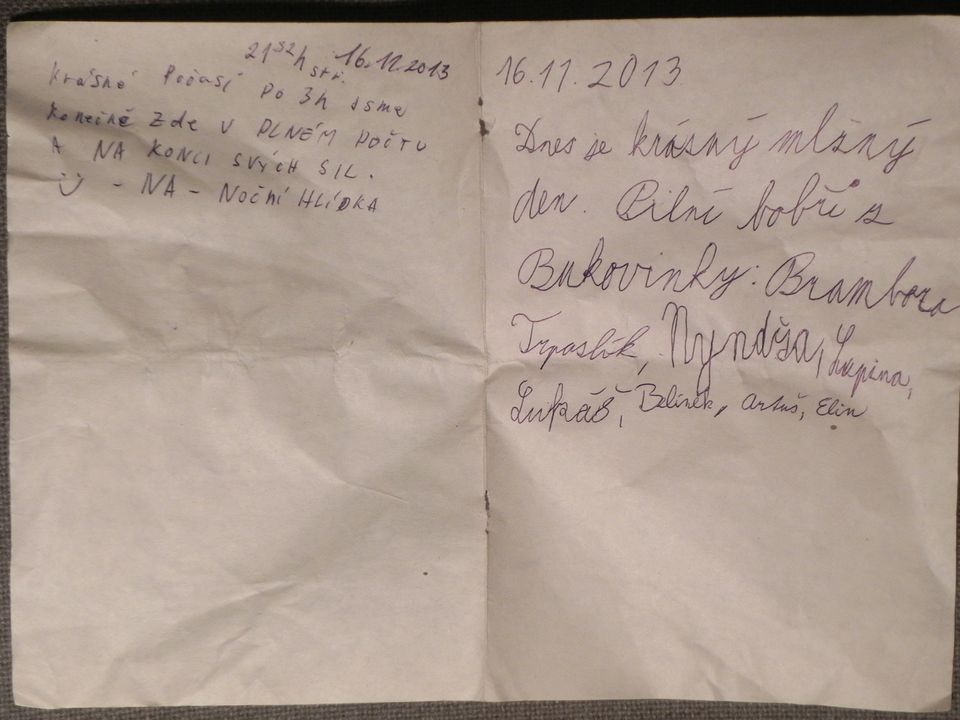 21 52 h 16.11.2013
stř.
Krásné Počasí Po 3h jsme
Konečně Zde V PLNÉM POČTU
A NA KONCI SVÝCH SIL.
- NA - NOČNÍ HLÍDKA
16.11.2013
Dnes je krásný mlžný
den. Pilní bobři z
Bukovinky: Brambora
Trpaslík, Nyndža, Lupina,
Lukáš, Belínek, Artuš, Elin